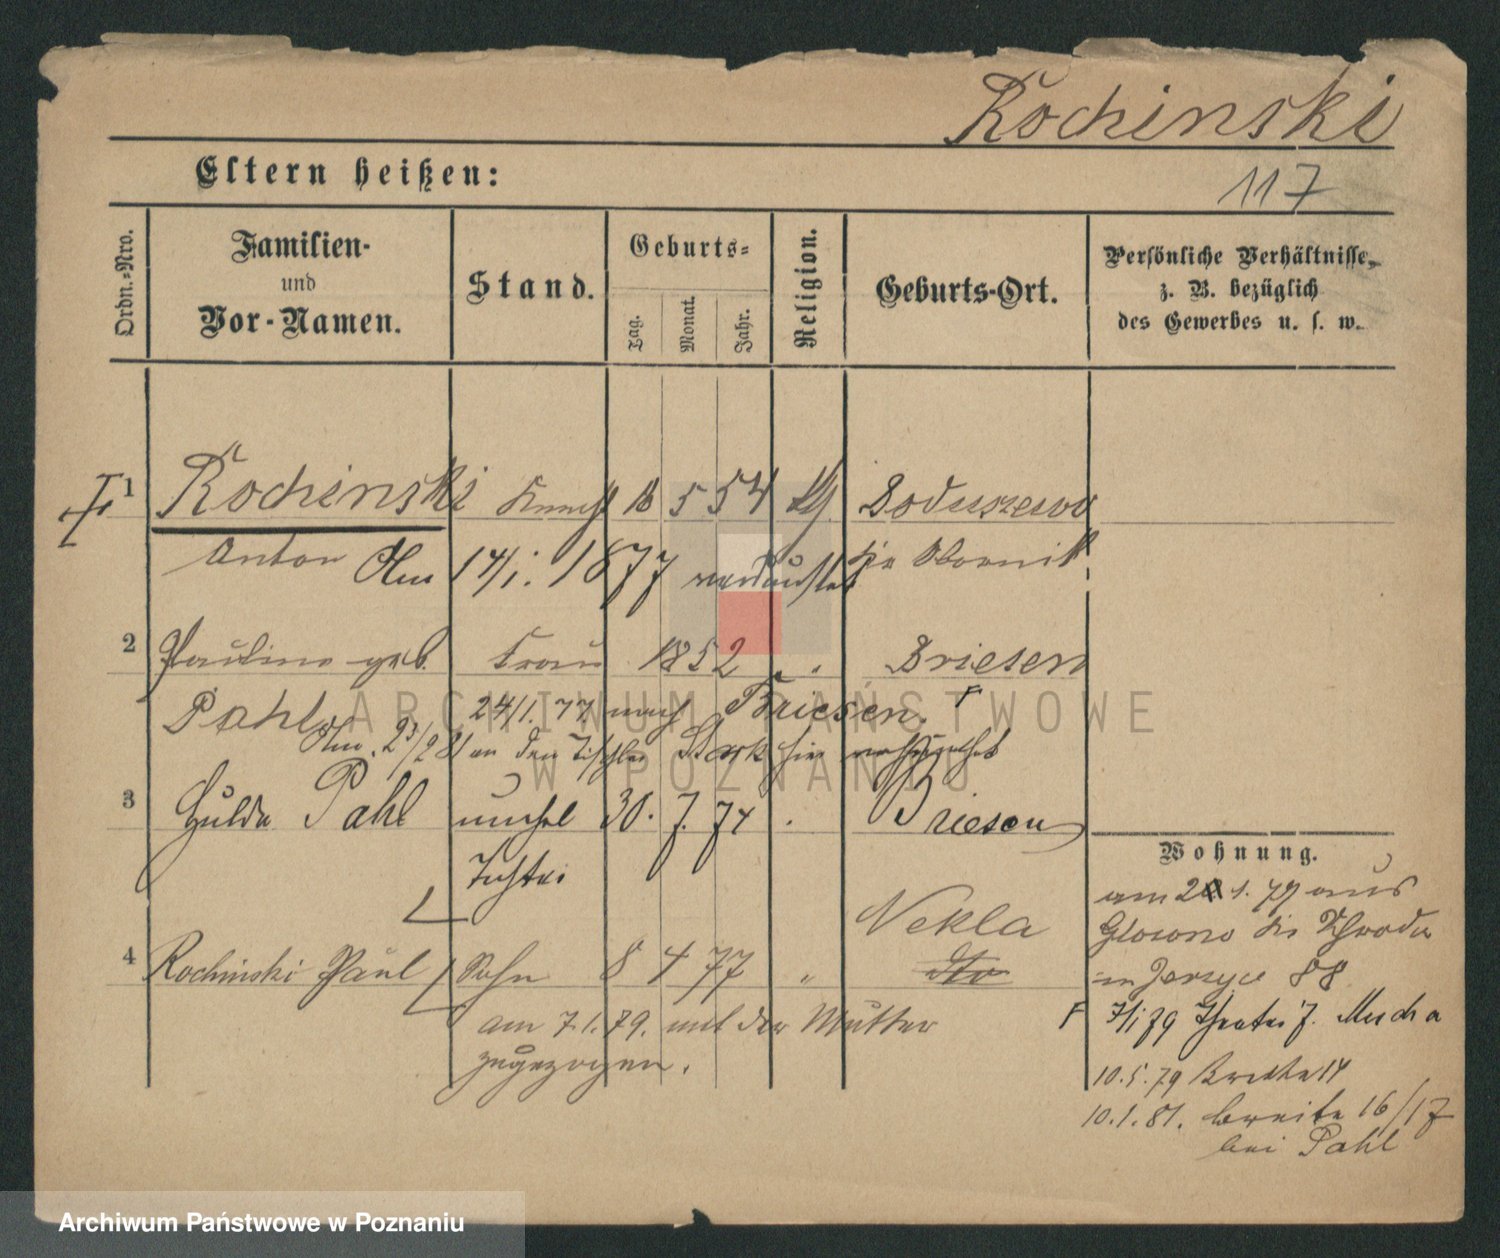 Kochinski
Eltern heißen:
117
Ordn.-Nro.
Familien-
und
Vor-Namen.
Stand.
Geburts-
Tag.
Monat.
Jahr.
Religion.
Geburts-Ort.
Persönliche Verhältnisse,
z. B. bezüglich
des Gewerbes u. s. w.
1 Kochinski Knecht 16 5 54 kg Boduszewo
Anton Am 14/1. 1877 bie Obornik
2 Pauline geb. Frau 1852 " Briesen
Pahl 24/1. 77 nach Briesen.
Am. 23/2 81 an den Tischler Stark hier
3 Hulda Pahl unehel 30. 7. 74 . Briesen
Tochter
Wohnung.
am 20 1. 77 aus
Nekla
Glowno bie Schroda
4 Kochinski Paul Sohn 8 4 77 " dto
in Jerzyce 88
am 7.1.79. mit der Mutter
zugezogen.
7/1 79 7. Mucha
10.5.79 14
10.1.81. breite 16/17
bei Pahl
ARCHIWUM PAŃSTWOWE
W POZNANIU
Archiwum Państwowe w Poznaniu